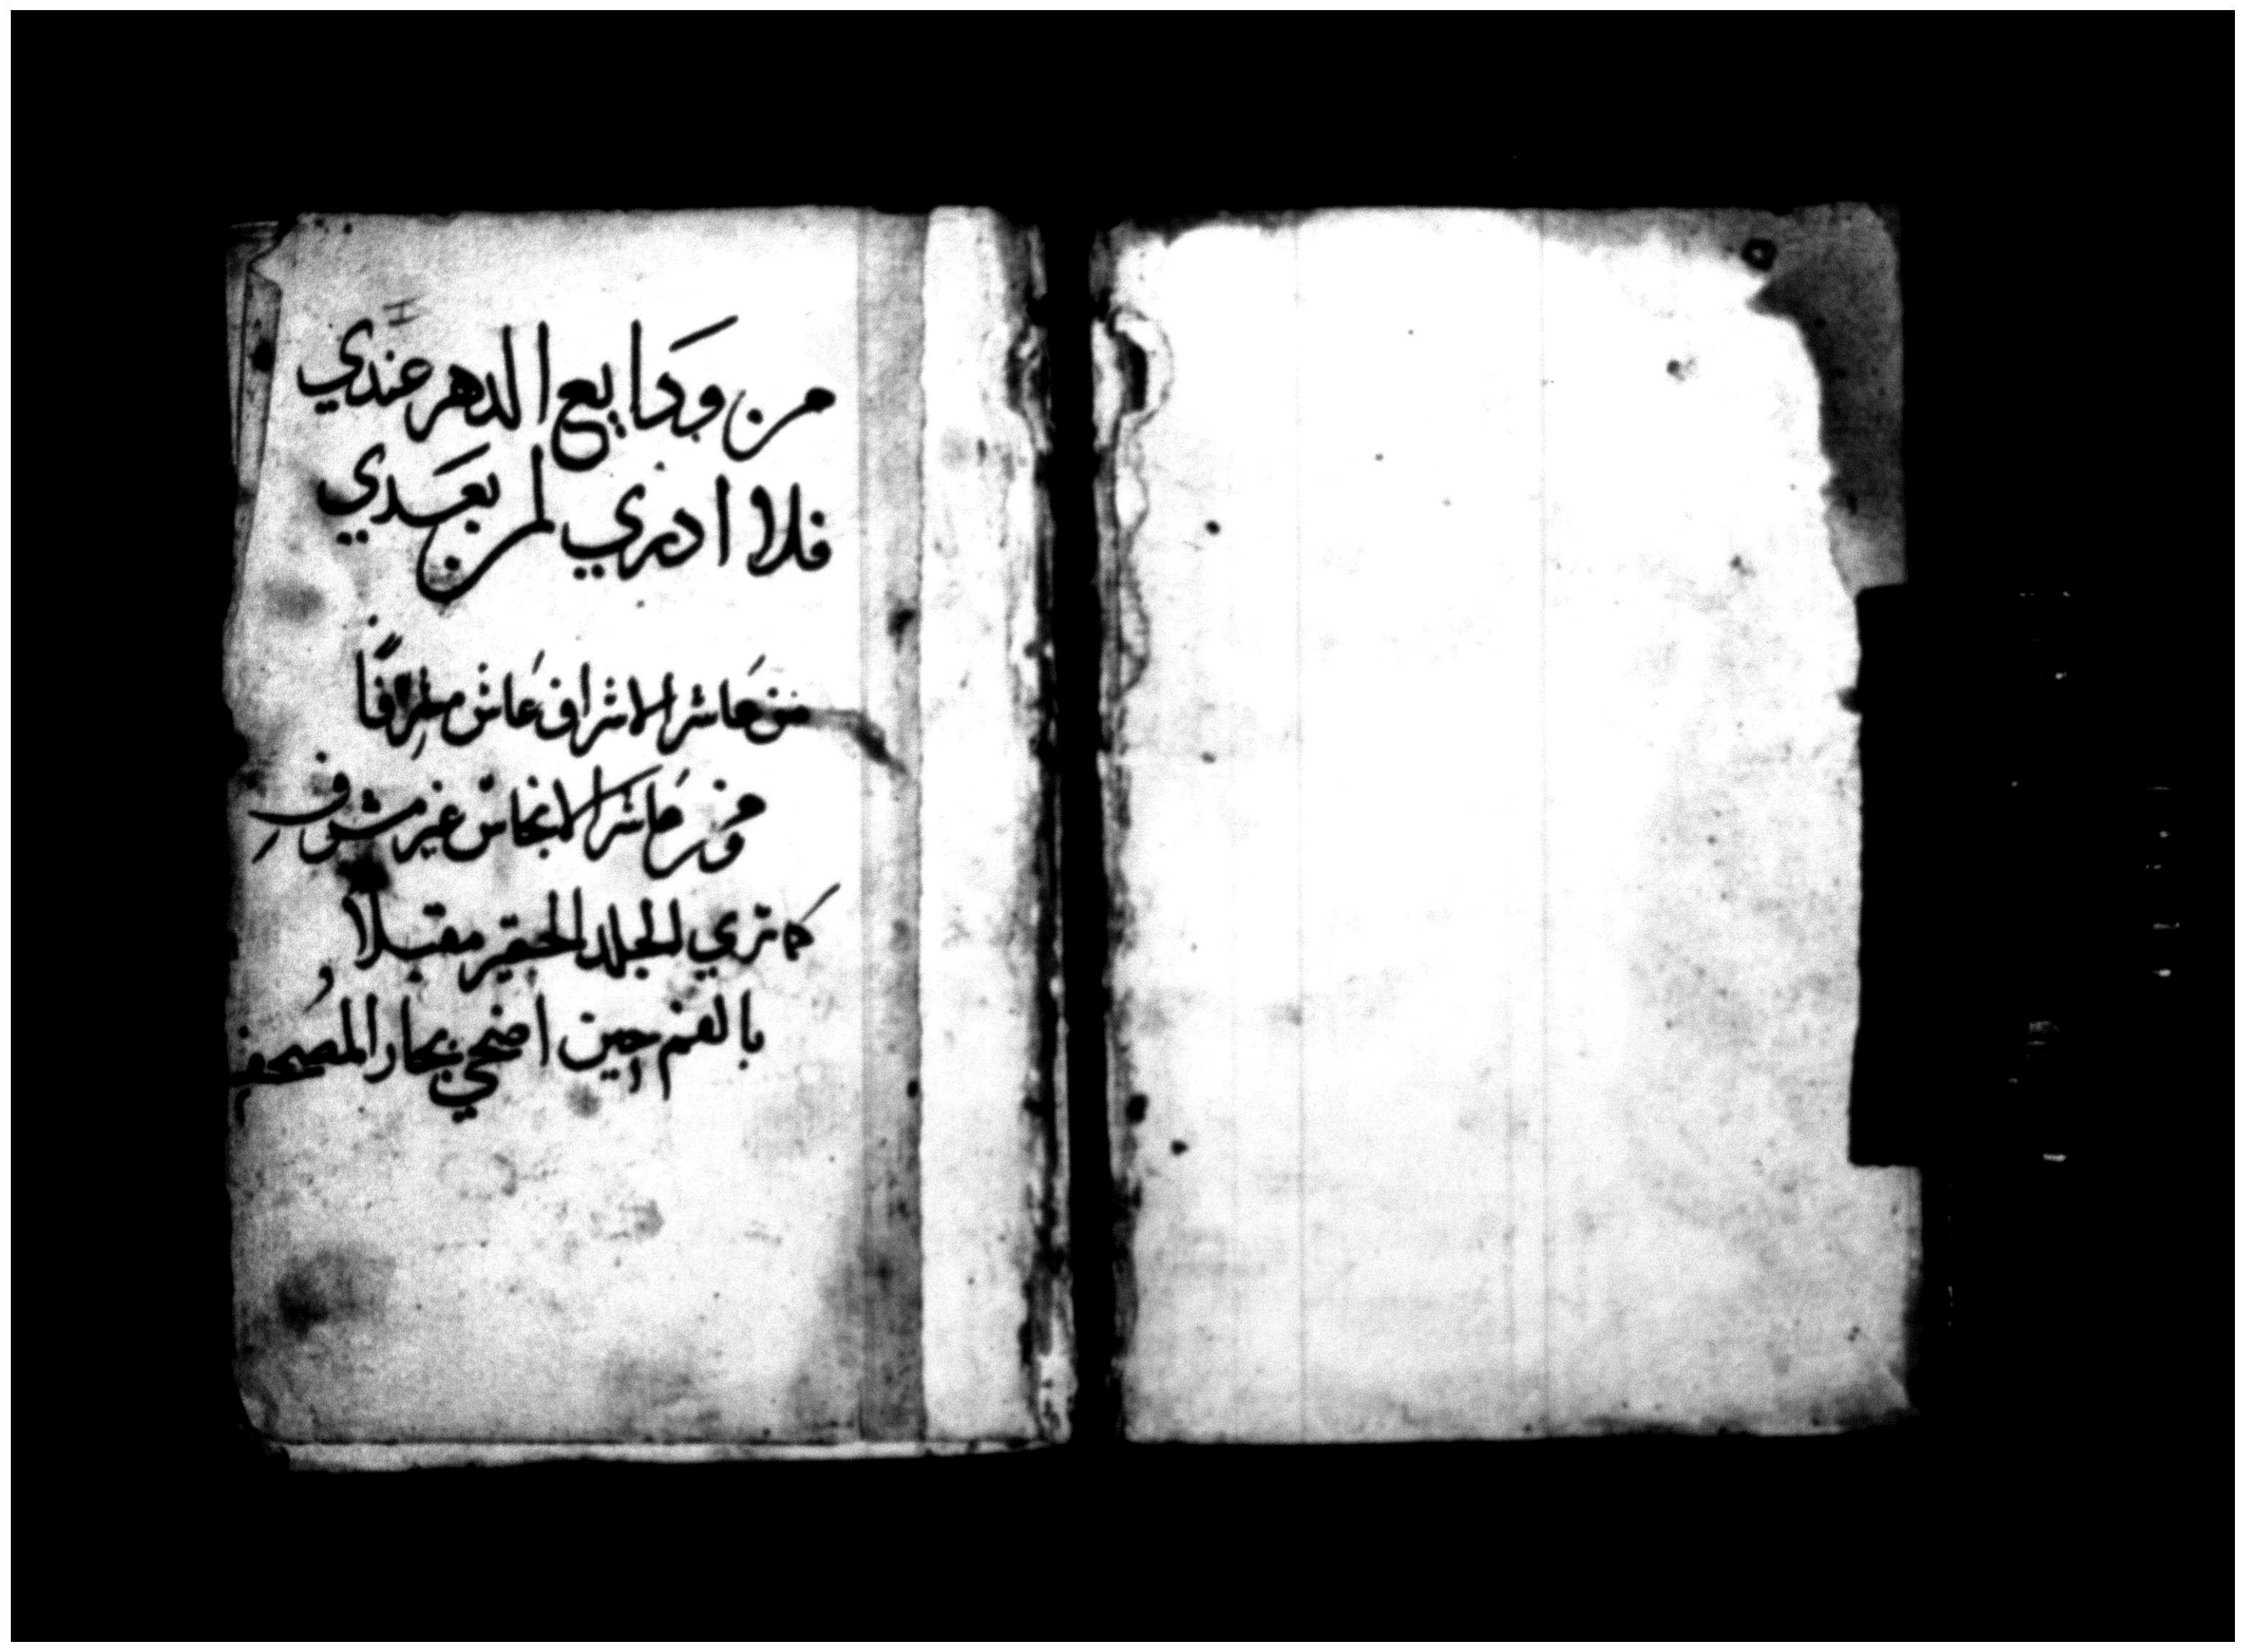 من ودايع الدهر عندي
فلا ادري لمن بعدي
من عاشر الاشراف عاش مشرفًا
ومن عاشر الانجاس غير مشرف
كما تري الجلد الحقير مقبلا
بالفم حين اضحي بجار المصحف